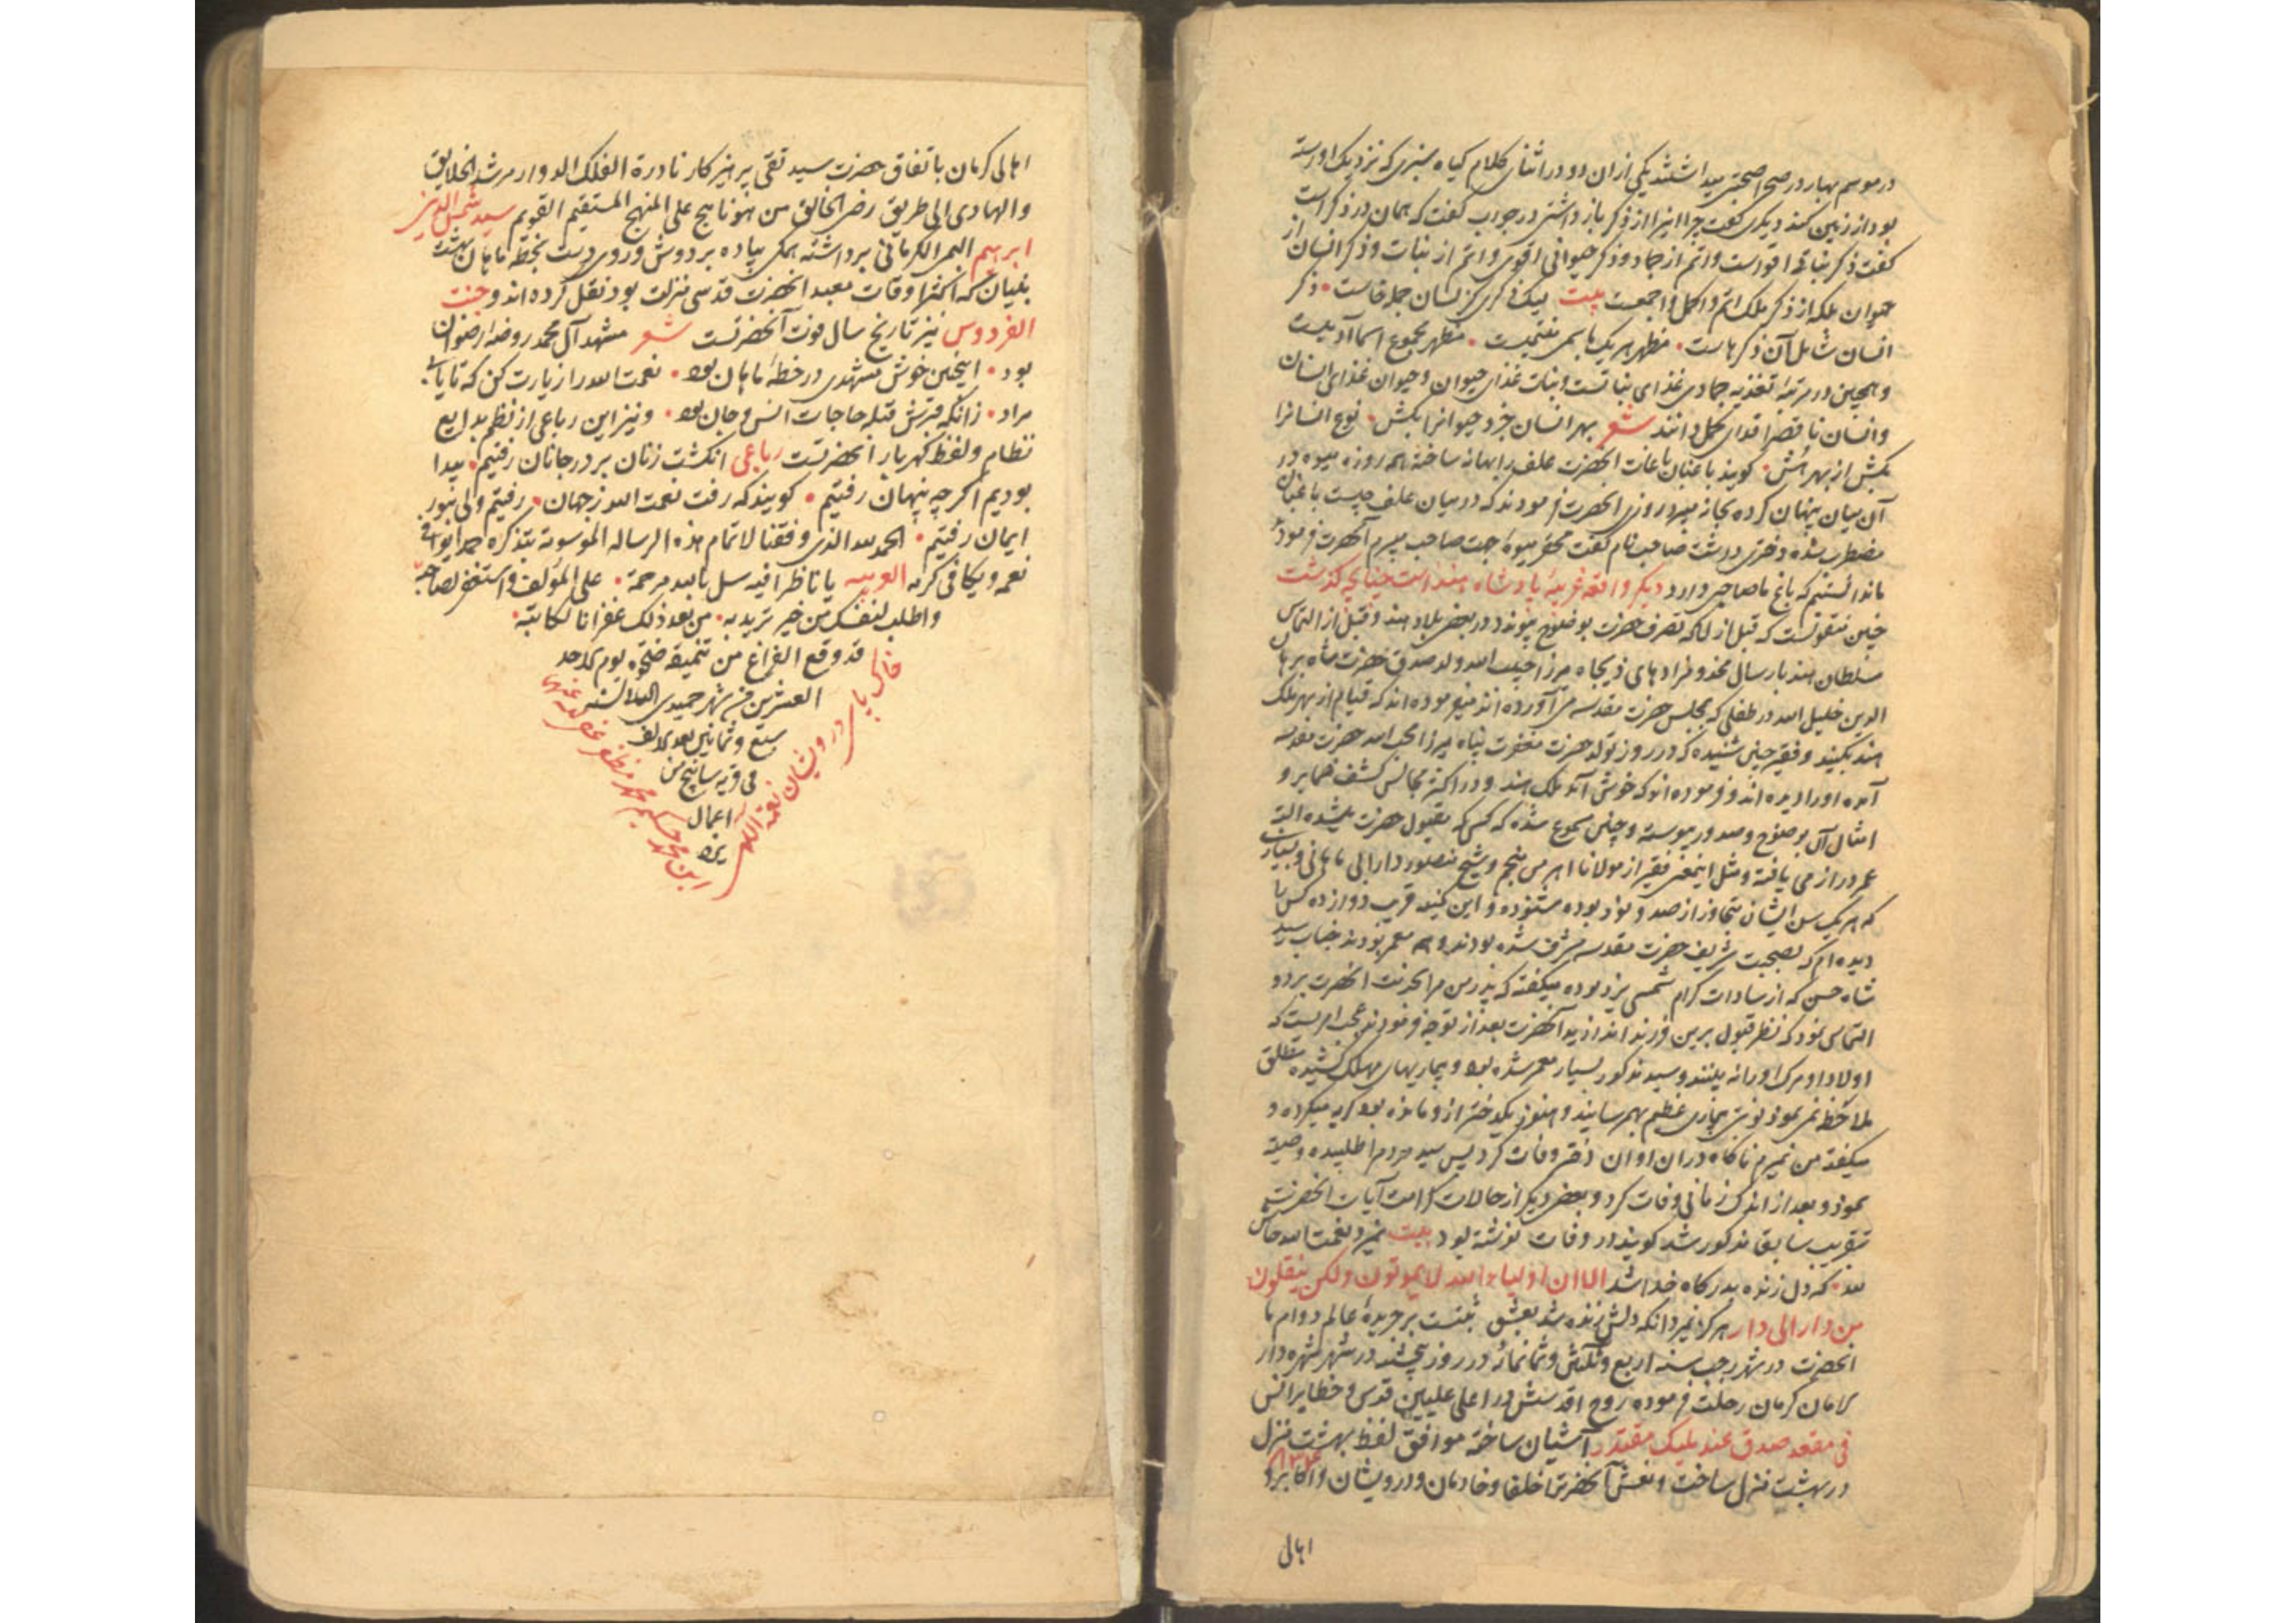 در موسم بهار در صحرا صحبتی میداشتند یکی ازان دو در اثنای کلام کیاه سبزی که نزدیک او رسته
بود از زمین کند دیکری کفت چرا اینرا از ذکر باز داشتی در جواب کفت که همان در ذکر است
کفت ذکر نباتی اقواست و اتم از جماد و ذکر حیوانی اقوی و اتم از نبات و ذکر انسان از
حیوان بلکه از ذکر ملک اتم و اکمل و اجمعست بیت لیک ذکری کز لسان جمله خاست • ذکر
انسان شامل آن ذکرهاست • مظهر هر یک باسمی منتمیست • مظهر مجموع اسما آدمیست
و همچنین در مرتبه تغذیه جمادی غذای نباتست و نبات غذای حیوان و حیوان غذای انسان
و انسان ناقص را فدای کمل دانند شعر بهر انسان خرد حیوانرا بکش • نوع انسانرا
بکش از بهر هش • کویند باغبان باغات انحضرت علف را بهانه ساخته همه روزه میوه در
آن میان پنهان کرده بخانه میبرد روزی انحضرت فرمودند که در میان علف چیست باغبان
مضطرب شده دختری داشت صاحب نام کفت محقر میوهٔ جهت صاحب میبرم آنحضرت فرمود
ما ندانستیم که باغ ما صاحبی دارد دیکر واقعه غریبهٔ پادشاه هند است چنانچه کذشت
چنین منقولست که قبل از انکه تصرف حضرت بوضوح پیوندد در بعضی بلاد هند و قبل از التماس
سلطان هند بارسال مخدومزادهای ذیجاه مرزا حبیب الله ولد صدق حضرت شاه برهان
الدین خلیل الله در طفلی که بمجلس حضرت مقدسه می آورده اند میفرموده اند که قیام از بهر ملک
هند بکنید و فقیر چنین شنیده که در روز تولد حضرت مغفرت پناه میرزا محب الله حضرت مقدسه
آمده اورا دیده اند و فرموده اند که خوش آمد ملک هند و در اکثر مجالس کشف ضمایر و
امثال آن بوضوح و صدور پیوسته و چنین مسموع شده که کسی که مقبول حضرت میشده البته
عمر دراز می یافته و مثل اینمعنی فقیر از مولانا منجم و شیخ منصور دارابی ماهانی و بسیاری
که هر یک سن ایشان متجاوز از صد و نود بوده شنوده و این کمینه قریب دوازده کس را
دیده ام که بصحبت شریف حضرت مقدسه مشرف شده بودند و همه معمر بودند جناب سید
شاه حسن که از سادات کرام شمسی یزد بوده میکفته که پدر من مرا بخدمت انحضرت برد و
التماس نمود که نظر قبول برین فرزند اندازید آنحضرت بعد از توجه فرمودند عجب امریست که
اولاد او مرک اورا نه بینند و سید مذکور بسیار معمر شده بود و بیماریهای مهلک کشیده مطلق
ملاحظه نمی نمود نوبتی بیماری عظیم بهم رسانید و هنوز یکدختر از و مانده بود کریه میکرده و
میکفته من نمیرم ناکاه دران اوان دختر وفات کرد پس سید مردم را طلبیده وصیة
نمود و بعد از اندک زمانی وفات کرد و بعضی دیکر از حالات کرامت آیات انحضرت
بتقریب سابق مذکور شد کویند در وفات نوشته بود بیت نمیرد نعمت الله حاش
لله • که دل زنده بدرکاه خدا شد الا ان اولیاء الله لا یموتون ولکن ینقلون
من دار الی دار هرکز نمیرد انکه دلش زنده شد بعشق ثبتست بر جریدهٔ عالم دوام ما
انحضرت در شهر رجب سنه اربع و ثلثین و ثمانمائه در روز پنجشنبه در شهر شهره دار
الامان کرمان رحلت فرموده روح اقدسش در اعلی علیین قدس و حظایر انس
فی مقعد صدق عند ملیک مقتدر آشیان ساخته موافق لفظ بهشت منزل ۸۳۴
در بهشت منزل ساخت و نعش آنحضرترا خلفا و خادمان و درویشان و اکابر و
اهالی
اهالی کرمان باتفاق حضرت سید تقی پرهیزکار نادرة الفلک الدوار مرشد الخلایق
والهادی الی طریق رضی الخالق من هو ناهج علی المنهج المستقیم القویم سید شمس الدین
ابرهیم البمی الکرمانی برداشته همکی پیاده بر دوش و روی دست بخطه ماهان بهشت
بنیان که اکثر اوقات معبد انحضرت قدسی منزلت بود نقل کرده اند و جنت
الفردوس نیز تاریخ سال فوت آنحضرتست شعر مشهد آل محمد روضهٔ رضوان
بود • اینچنین خوش مشهدی در خطهٔ ماهان بود • نعمت الله را زیارت کن که تا یابی
مراد • زانکه قبرش قبله حاجات انس و جان بود • و نیز این رباعی از نظم بدایع
نظام و لفظ کهربار انحضرتست رباعی انکشت زنان بر در جانان رفتیم • پیدا
بودیم اکر چه پنهان رفتیم • کویند که رفت نعمت الله ز جهان • رفتیم ولی بنور
ایمان رفتیم • الحمد لله الذی وفقنا لاتمام هذه الرساله الموسومة بتذکره حمدا یوافی
نعمه و یکافی کرمه العربیه یا ناظرا فیه سل بالله مرحمة • علی المؤلف واستغفر لصاحبه
واطلب لنفسک من خیر ترید به • من بعد ذلک غفرانا لکاتبه •
قد وقع الفراغ من تنمیقه ضحوه یوم الاحد
العشرین من شهر جمیدی الثانی سنه
سبع و ثمانین بعد الالف
فی قریه سانیج من
اعمال
یزد
خاک پای درویشان نعمة اللهی
ابن محمد حکیم محمد مظفر عفی الله عنهما